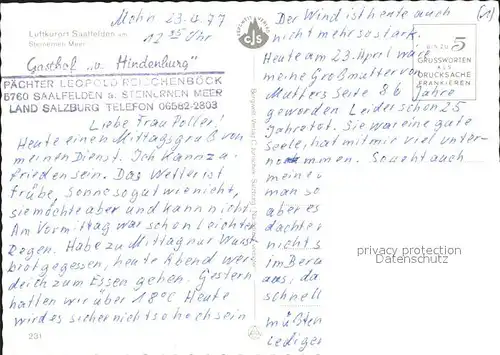 Mohn 23.4.77
12 35 Uhr
Luftkurort Saalfelden am
Steinernen Meer
Gasthof "v. Hindenburg"
PÄCHTER LEOPOLD REISCHENBÖCK
5760 SAALFELDEN a. STEINERNEN MEER
LAND SALZBURG TELEFON 06582-2803
Liebe Frau Poller!
Heute einen Mittagsgruß von
meinen Dienst. Ich kann zu-
frieden sein. Das Wetter ist
trübe, Sonne so gut wie nicht,
sie möchte aber und kann nicht.
Am Vormittag war schon leichter
Regen. Habe zu Mittag nur Wurst
brot gegessen, heute Abend wer
de ich zum Essen gehen. Gestern
hatten wir über 18°C Heute
wird es sicher nicht so hoch sein
231
CJS
(1)
Der Wind ist heute auch
nicht mehr so stark.
Heute am 23. April wäre
meine Großmutter von
Mutters Seite 86 Jahre
geworden Leider schon 25
Jahre tot. Sie war eine gute
Seele, hat mit viel unter-
nommen. So geht auch
meine
man so
aber es
dachte
nicht s
im Beru
aus, da
schnell
müßten
lediger
BIS ZU 5
GRUSSWORTEN
ALS
DRUCKSACHE
FRANKIEREN
privacy protection
Datenschutz